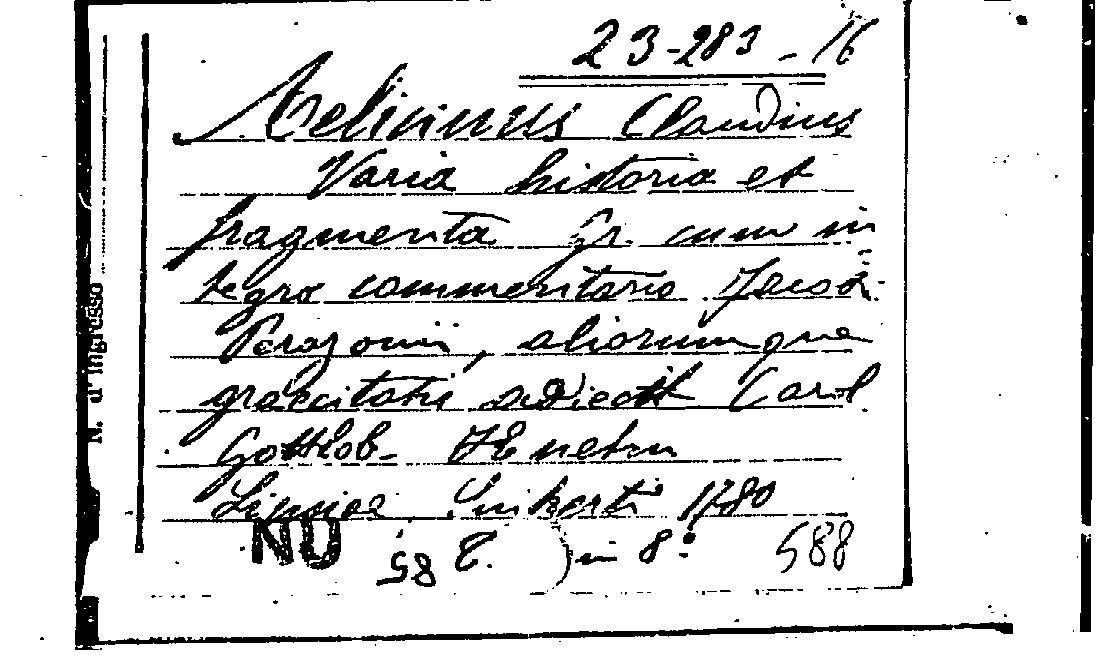 23-283-16
Aelianus Claudius
Varia historia et
fragmenta Gr. cum in
tegro commentario Jacobi
Perizonii, aliorumque
graecitatis adiecit Carol
Gottlob-
Lipsiae 1780
NU 58 in 8° 588
N. d'ingresso